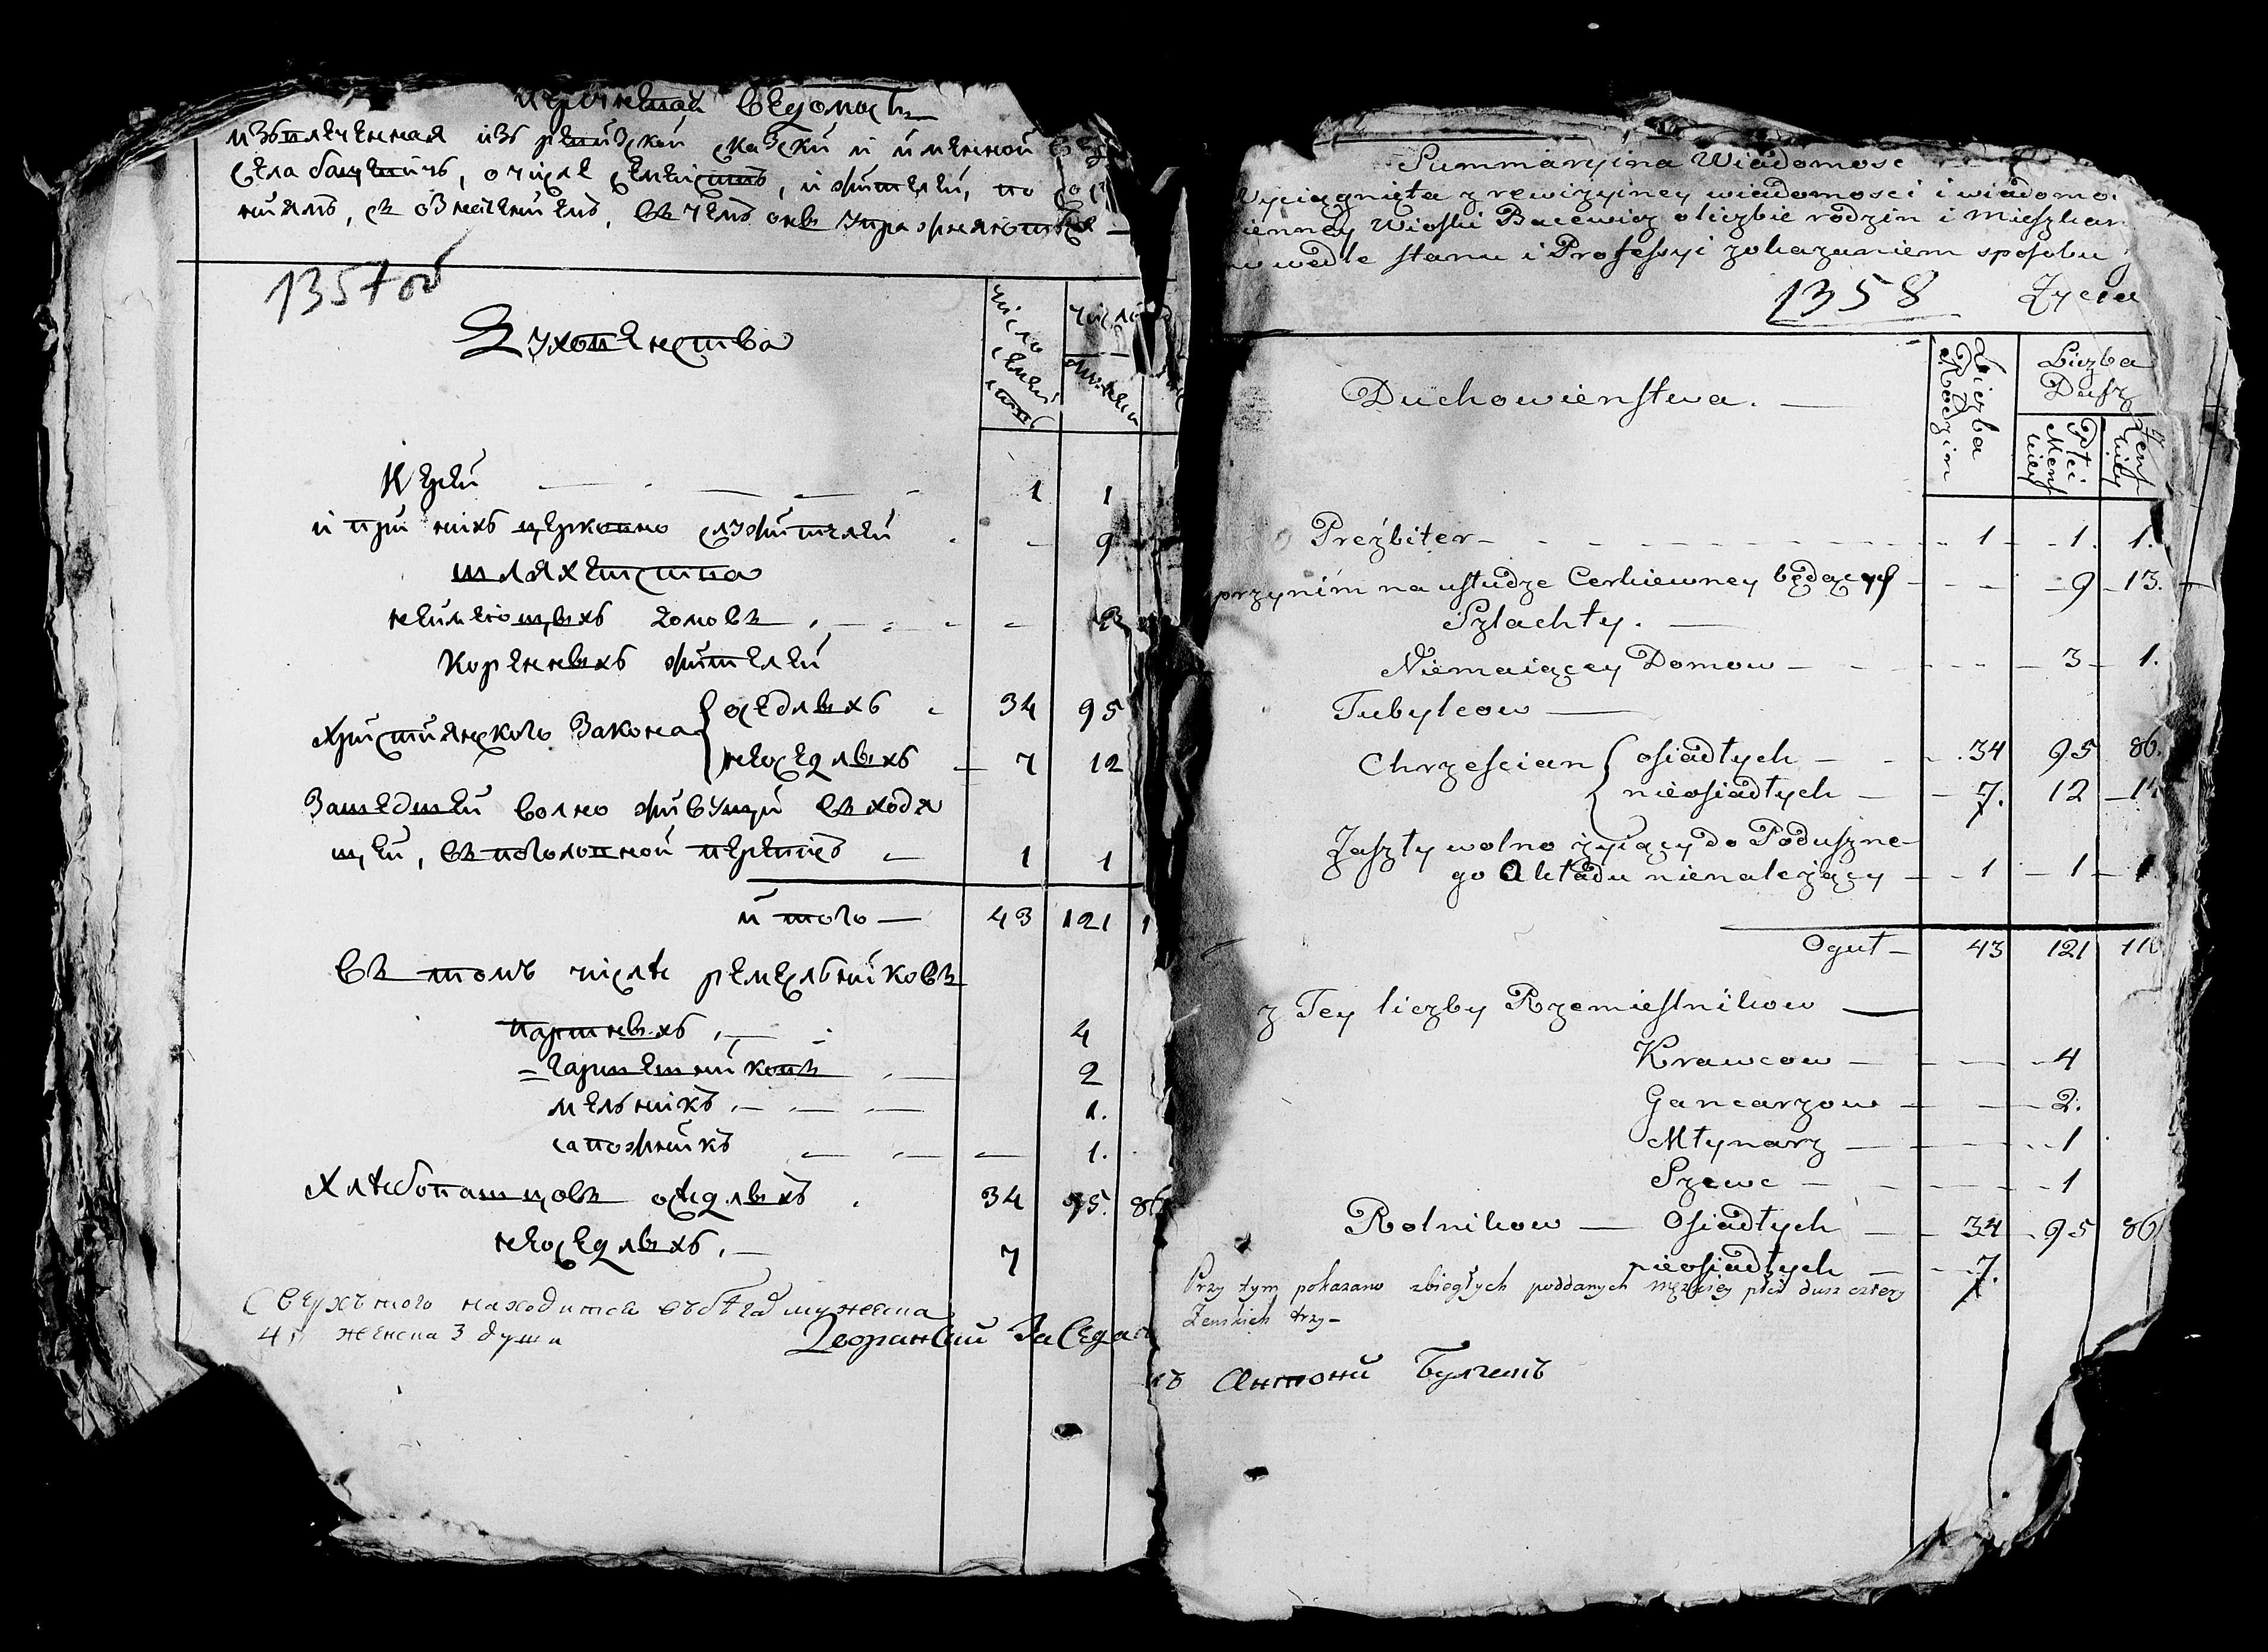 перечневая ведомость
извлеченная из ревизской скаски и именной
села бацевичъ, о числе семействъ, и жителей, по состо
ниямъ, съ означениемъ, въ чемъ онѣ упражняются —
1357 об
Духовенства
число семействъ
число
мужеска
Иерей 1 1
и при нихъ церковно служителей 9
шляхетства
неимеющыхъ домовъ 3
Коренныхъ жителей
Християнского Закона { оседлыхъ 34 95
неоседлыхъ 7 12
Зашедшей волно живущи въ ходя
щей, въ поголовной перепись 1 1
и того — 43 121 1
въ томъ числѣ ремесльниковъ
портныхъ 4
гаршешниковъ 2
мельникъ 1.
сапожникъ 1.
Хлѣбопашцовъ осѣдлыхъ 34 95. 86
неоседлыхъ 7
Сверхъ того находится въ бѣгах мужеска
4, женска 3 души
Дворянский Заседат
Summaryina Wiadomosc
Wyciągnięta z rewizyiney wiadomosci i wiadomo
ienney Wioski Bacewicz o liczbie rodzin i mieszkan
wedle stanu i Professyi zokazaniem sposobu
1358 Życia
Duchowienstwa. —
Liczba Rodzin
Liczba Dusz
Płci Menskiey
Żenskiey
Prezbiter 1 1. 1.
przynim na usłudze Cerkiewney będących 9 13.
Szlachty. —
Niemaiący Domow 3 1.
Tubylcow —
Chrzescian { osiadłych 34 95 86.
nieosiadłych 7. 12
Zaszły wolno żyiący do Poduszne
go Okładu nienależący 1 1 1
Oguł 43 121
z Tey liczby Rzemieslnikow —
Krawcow 4
Gancarzow 2.
Młynarz 1
Szewc 1
Rolnikow — Osiadłych 34 95 86
nieosiadłych 7.
Przy tym pokazano zbiegłych poddanych męzkiey płci dusz cztery
Zenskich trzy —
лъ Антони Булгакъ